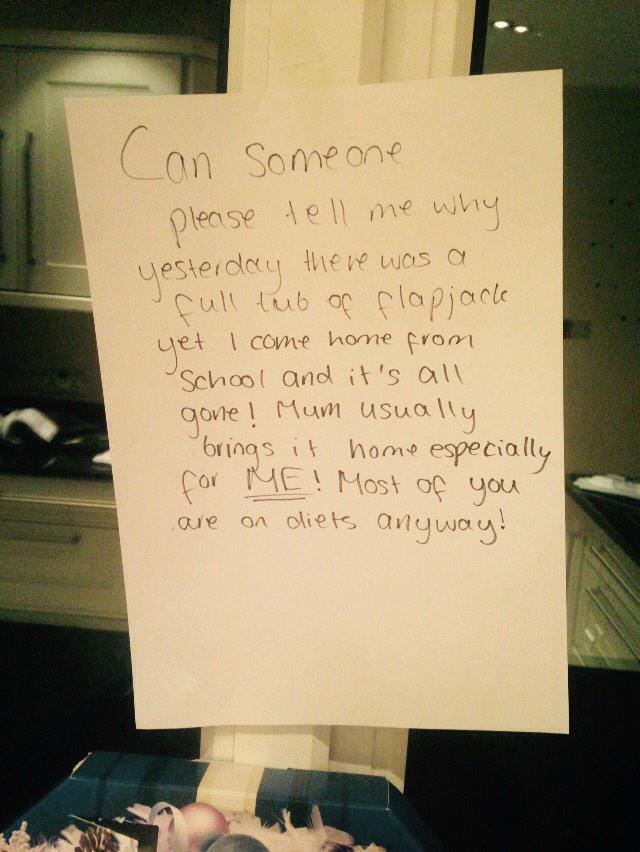 Can someone
please tell me why
yesterday there was a
full tub of flapjack
yet I come home from
school and it's all
gone! Mum usually
brings it home especially
for ME! Most of you
are on diets anyway!